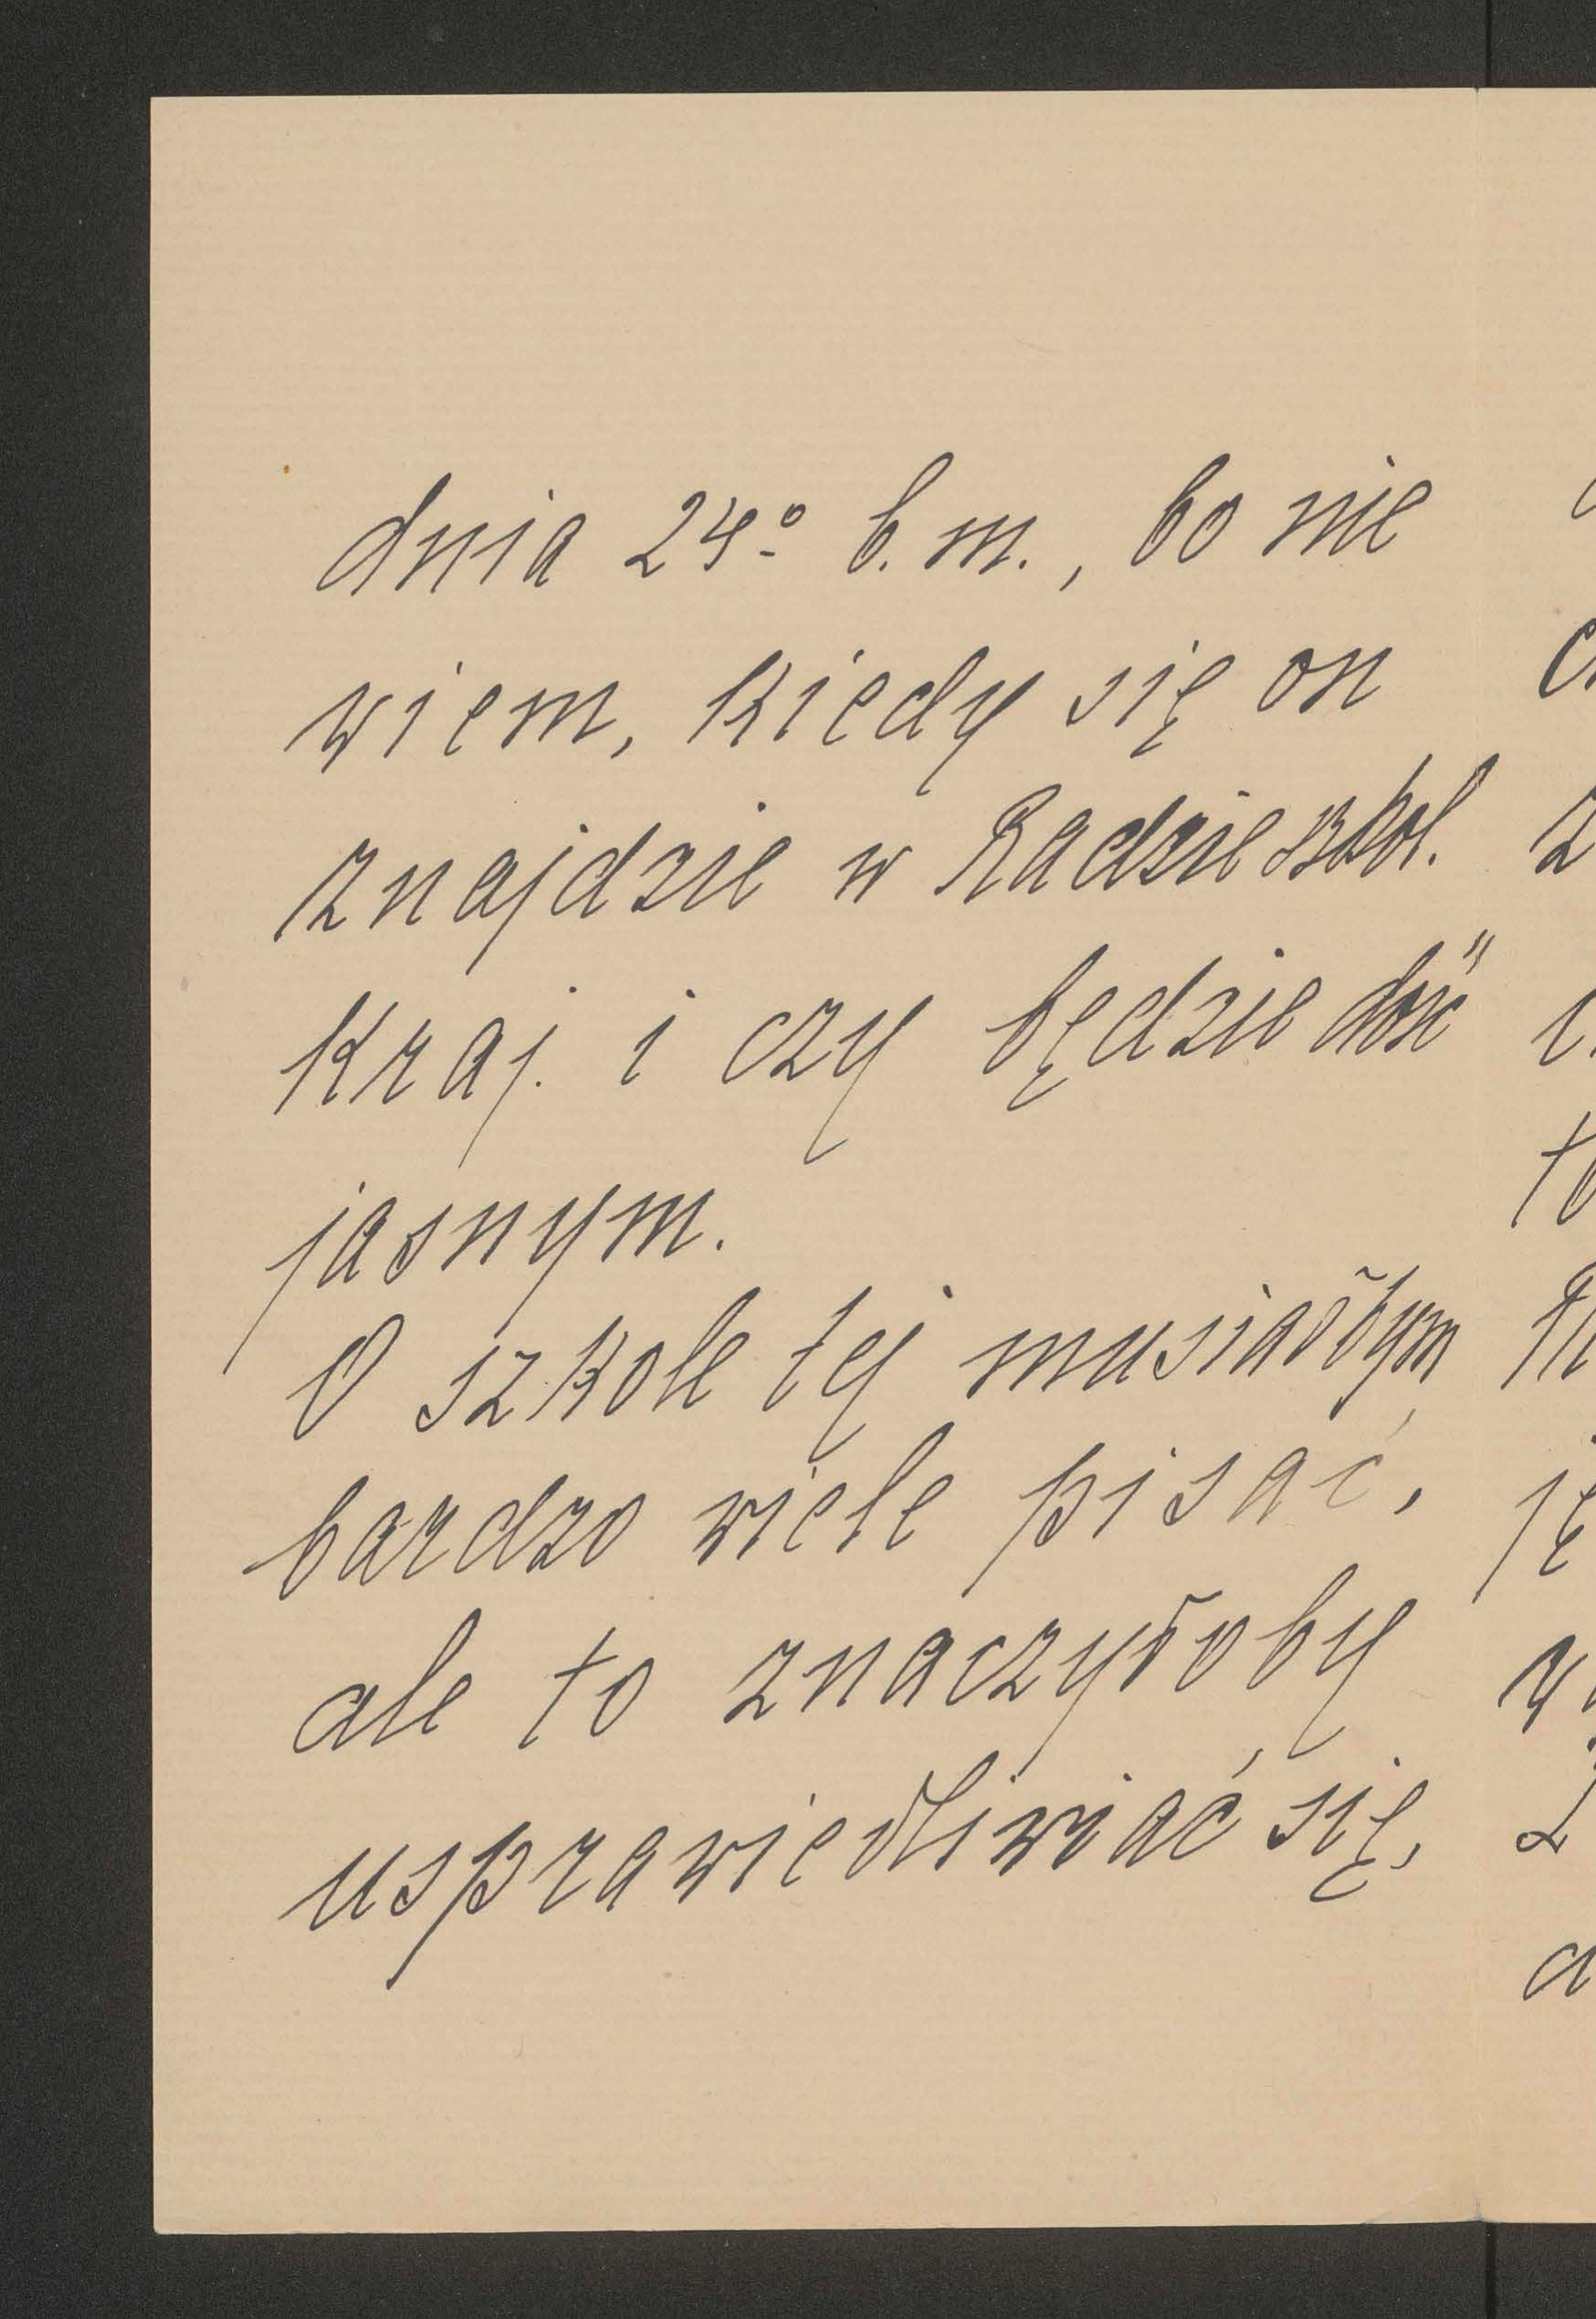 dnia 24º b. m., bo nie
wiem, kiedy się on
znajdzie w Radzie szkol.
kraj. i czy będzie dość
jasnym.
O szkole tej musiałbym
bardzo wiele pisać,
ale to znaczyłoby
usprawiedliwiać się,